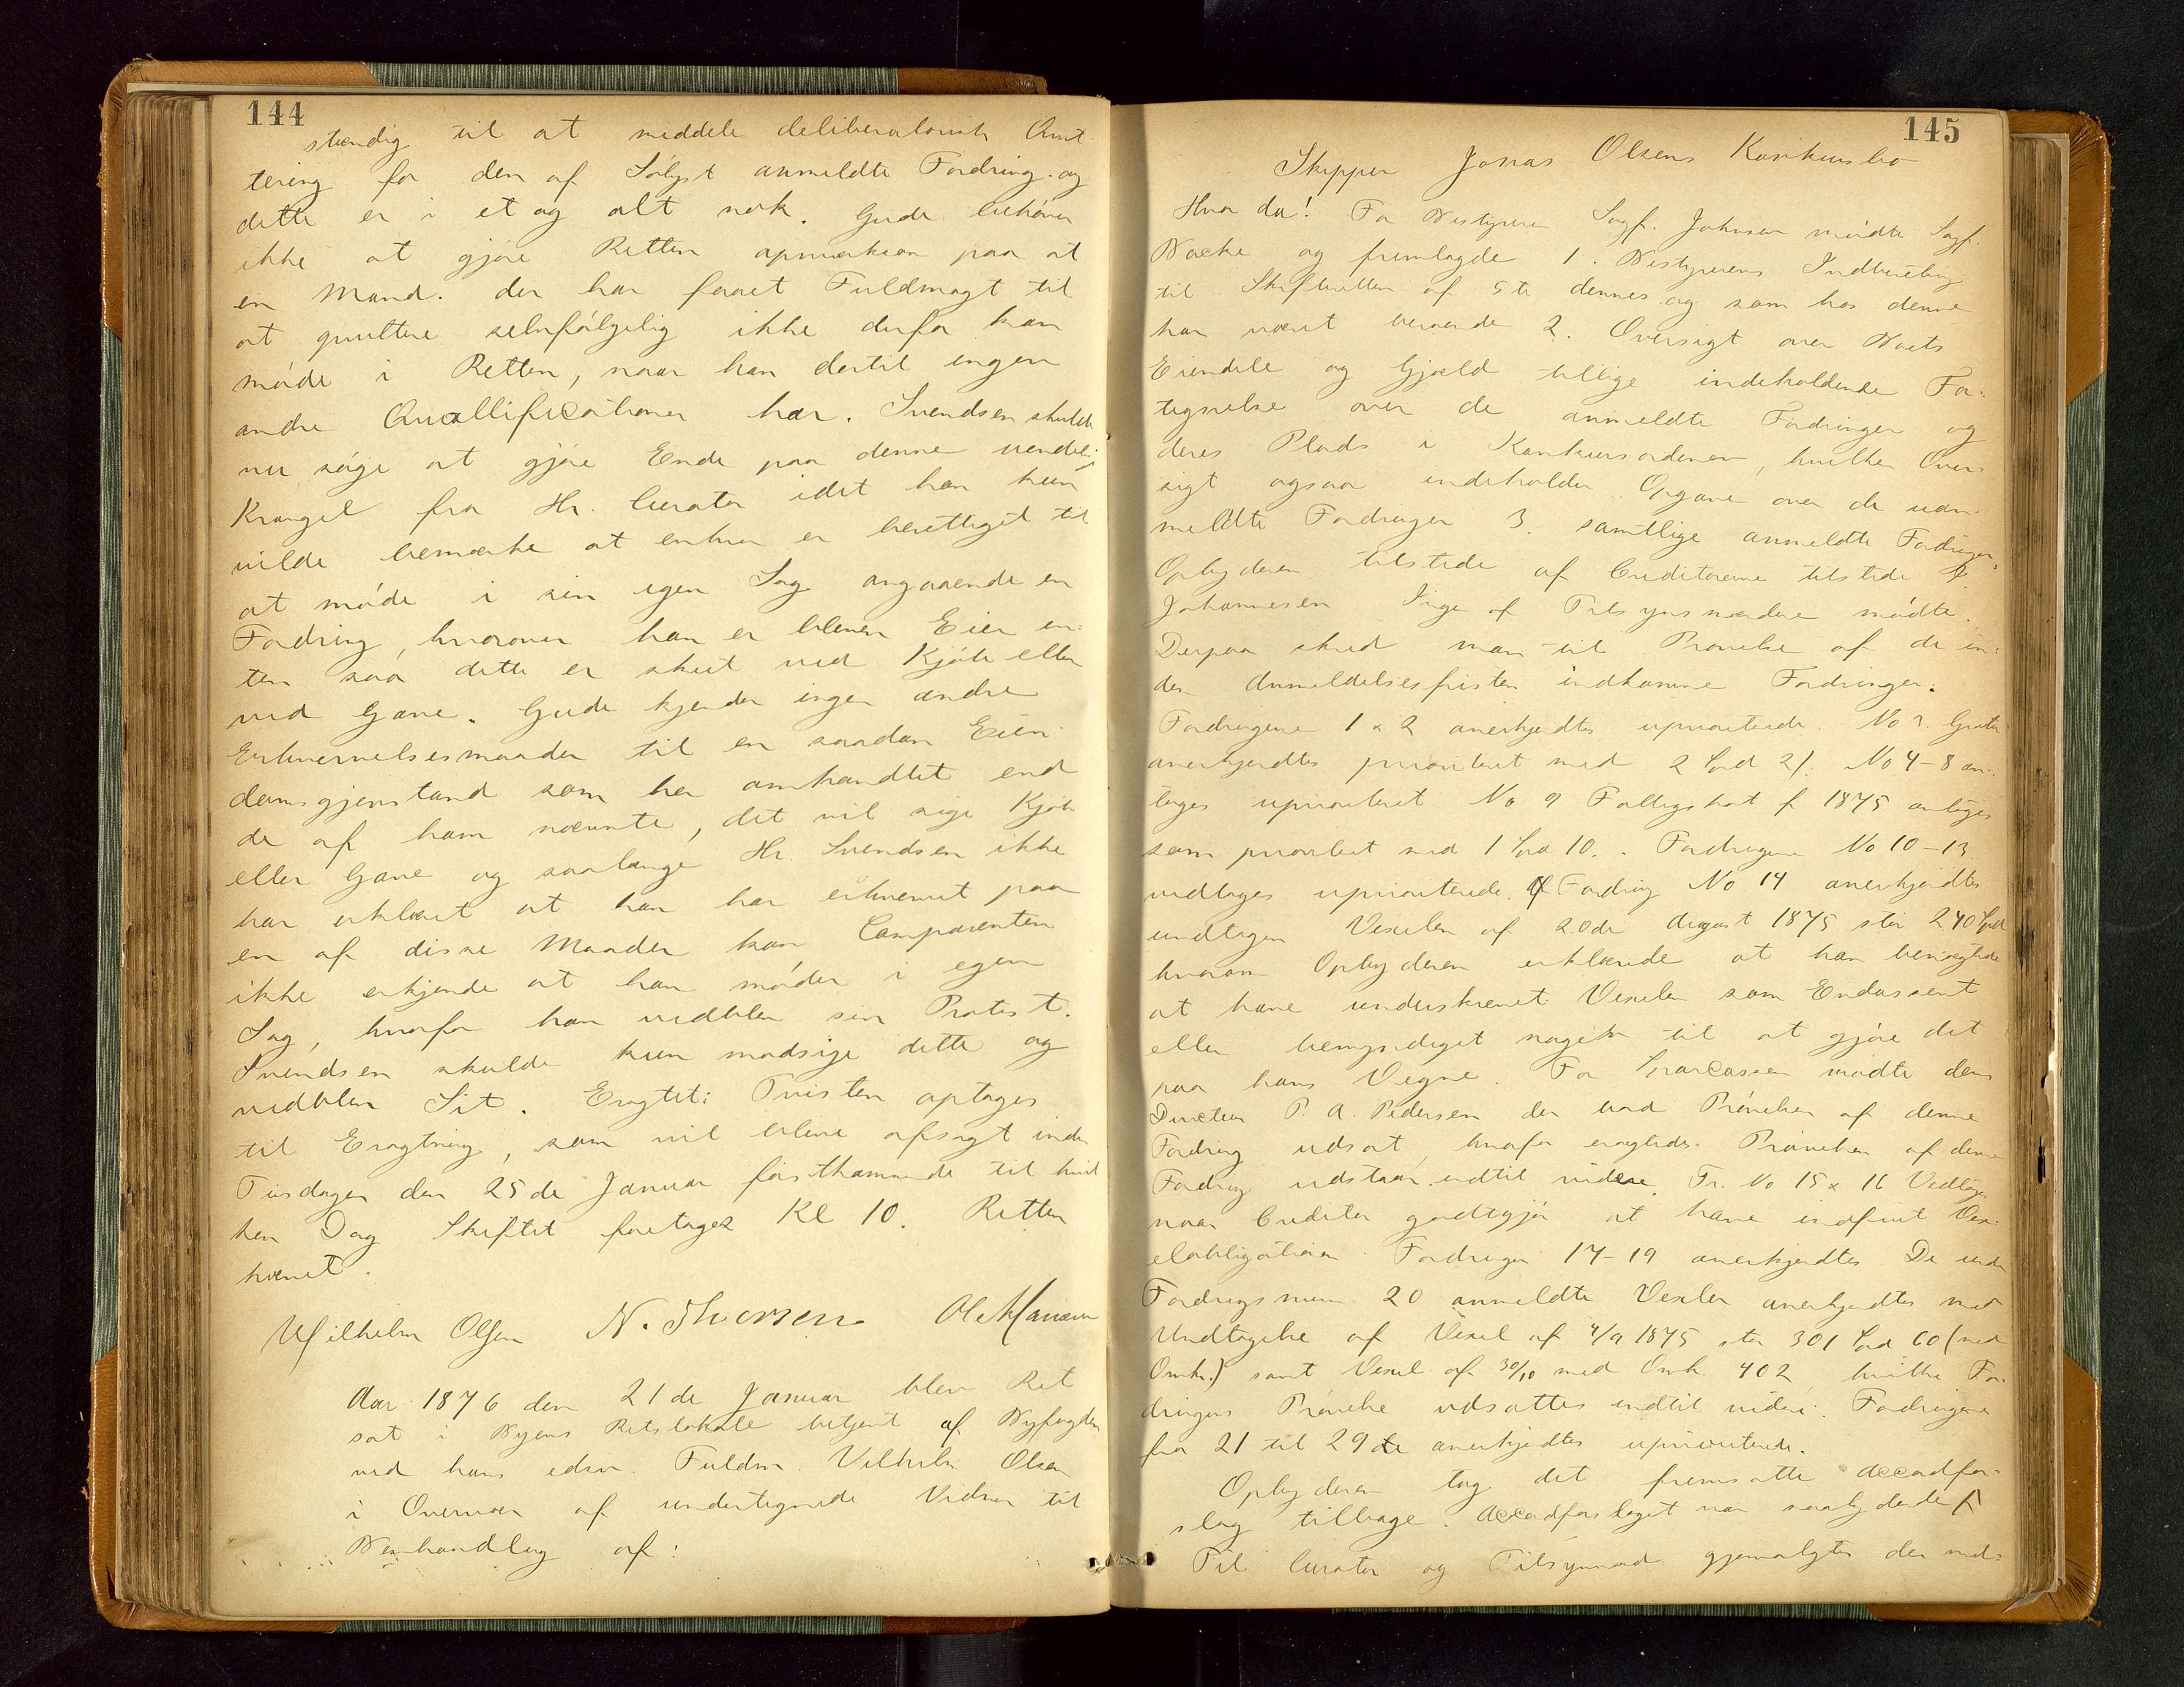 144
stændig til at meddele deliberatorisk Qvit-
tering for den af Sølyst anmeldte Fordring og
dette er i et og alt nok. Gude behøver
ikke at gjøre Retten opmærksom paa at
en Mand. der har faaet Fuldmagt til
at qvittere selvfølgelig ikke derfor kan
møde i Retten, naar han dertil ingen
andre Qvallificationer har. Svendsen skulde
nu søge at gjøre Ende paa denne uendelig
Krangel fra Hr. Curator idet han kun
vilde bemærke at enhver er berettiget til
at møde i sin egen Sag angaaende en
Fordring, hvorover han er bleven Eier en-
ten saa dette er skeet ved Kjøb eller
ved Gave. Gude kjender ingen andre
Erhvervelsesmaader til en saadan Eien
domsgjenstand som her omhandlet end
de af ham nævnte, det vil sige Kjøb
eller Gave og saalænge Hr. Svendsen ikke
har erklæret at han har erhvervet paa
en af disse Maader kan Comparenten
ikke erkjende at han møder i egen
Sag, hvorfor han vedblev sin Protest.
Svendsen skulde kun modsige dette og
vedblev Sit. Eragtet: Tvisten optages
til Eragtning, som vil blive afsagt inden
Tirsdagen den 25de Januar førstkommende til hvil
ken Dag Skiftet foretages Kl 10. Retten
hævet.
Wilhelm Olsen N. Thorsen Ole Hansen
Aar 1876 den 21de Januar blev Ret
sat i Byens Retslokale betjent af Byfogden
ved hans edsv. Fuldm. Vilhelm Olsen
i Overvær af undertegnede Vidner til
Behandling af:
145
Skipper Jonas Olsens Konkursbo
Hvor da! For Bestyrer Sagf. Johnsen mødte Sagf.
Backe og fremlagde 1. Bestyrerens Indberetning
til Skifteretten af 5te dennes og som hos denne
har været beroende 2. Oversigt over Boets
Eiendele og Gjæld tillige indeholdende For-
tegnelse over de anmeldte Fordringer og
deres Plads i Konkursordenen, hvilken Over-
sigt ogsaa indeholder Opgave over de uan-
meldte Fordringer 3. samtlige anmeldte Fordringer
Opbyderen tilstede af Creditorerne tilstede
Johannesen Ingen af Tilsynsmændene mødte.
Derpaa skred man til Prøvelse af de in-
den Anmeldelsesfristen indkomne Fordringer.
Fordringerne 1 & 2 anerkjendtes uprioriterede. No 3.
anerkjendtes prioriteret med 2 Spd 21. No 4-8 an-
toges uprioriteret No 9 Fattigskat f. 1875 antoges
som prioriteret med 1 Spd 10. Fordringerne No 10-13
vedtoges uprioriterede. Af Fordring No 14 anerkjendtes
undtagen Vexelen af 20de August 1875 stor 240 Spd
hvorom Opbyderen erklærede at han benægtede
at have underskrevet Vexelen som Endossent
eller bemyndiget nogen til at gjøre det
paa hans Vegne. For Sparecassen mødte dens
Directeur P. A. Pedersen der bad Prøvelsen af denne
Fordring udsat, hvorfor eragtedes. Prøvelsen af denne
Fordring udstaar indtil videre. Fr. No 15 & 16 Vedtoges
naar Creditor godtgjør at have indfriet Vex-
elobligationen. Fordringer 17-19 anerkjendtes. De under
Fordringsnum. 20 anmeldte Vexler anerkjendtes med
Undtagelse af Vexel af 4/9 1875 stor 301 Spd 60 (med
Omk.) samt Vexel af 30/10 med Omk. 402, hvilke For-
dringers Prøvelse udsattes indtil videre. Fordringerne
fra 21 til 29de anerkjendtes uprioriterede.
Opbyderen tog det fremsatte Accordfor-
slag tilbage. Accordforslaget var saalydende
Til Curator og Tilsynsmænd gjenvalgtes der ved-